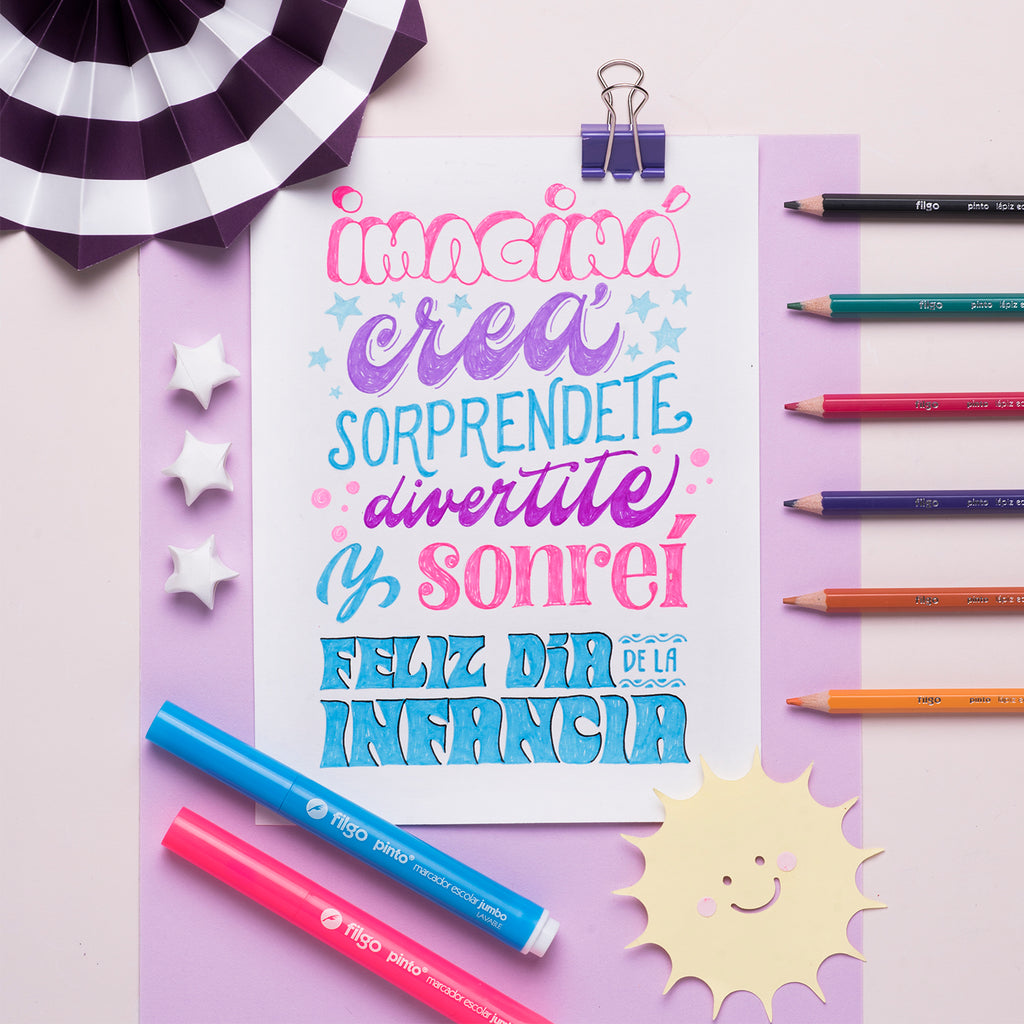 imaginá
creá
SORPRENDETE
divertite
y sonreí
FELIZ DíA DE LA
INFANCIA
filgo pinto lápiz
filgo pinto lápiz
filgo pinto lápiz
filgo pinto lápiz
filgo pinto lápiz
filgo pinto lápiz
filgo pinto® marcador escolar jumbo
LAVABLE
filgo pinto® marcador escolar jumbo